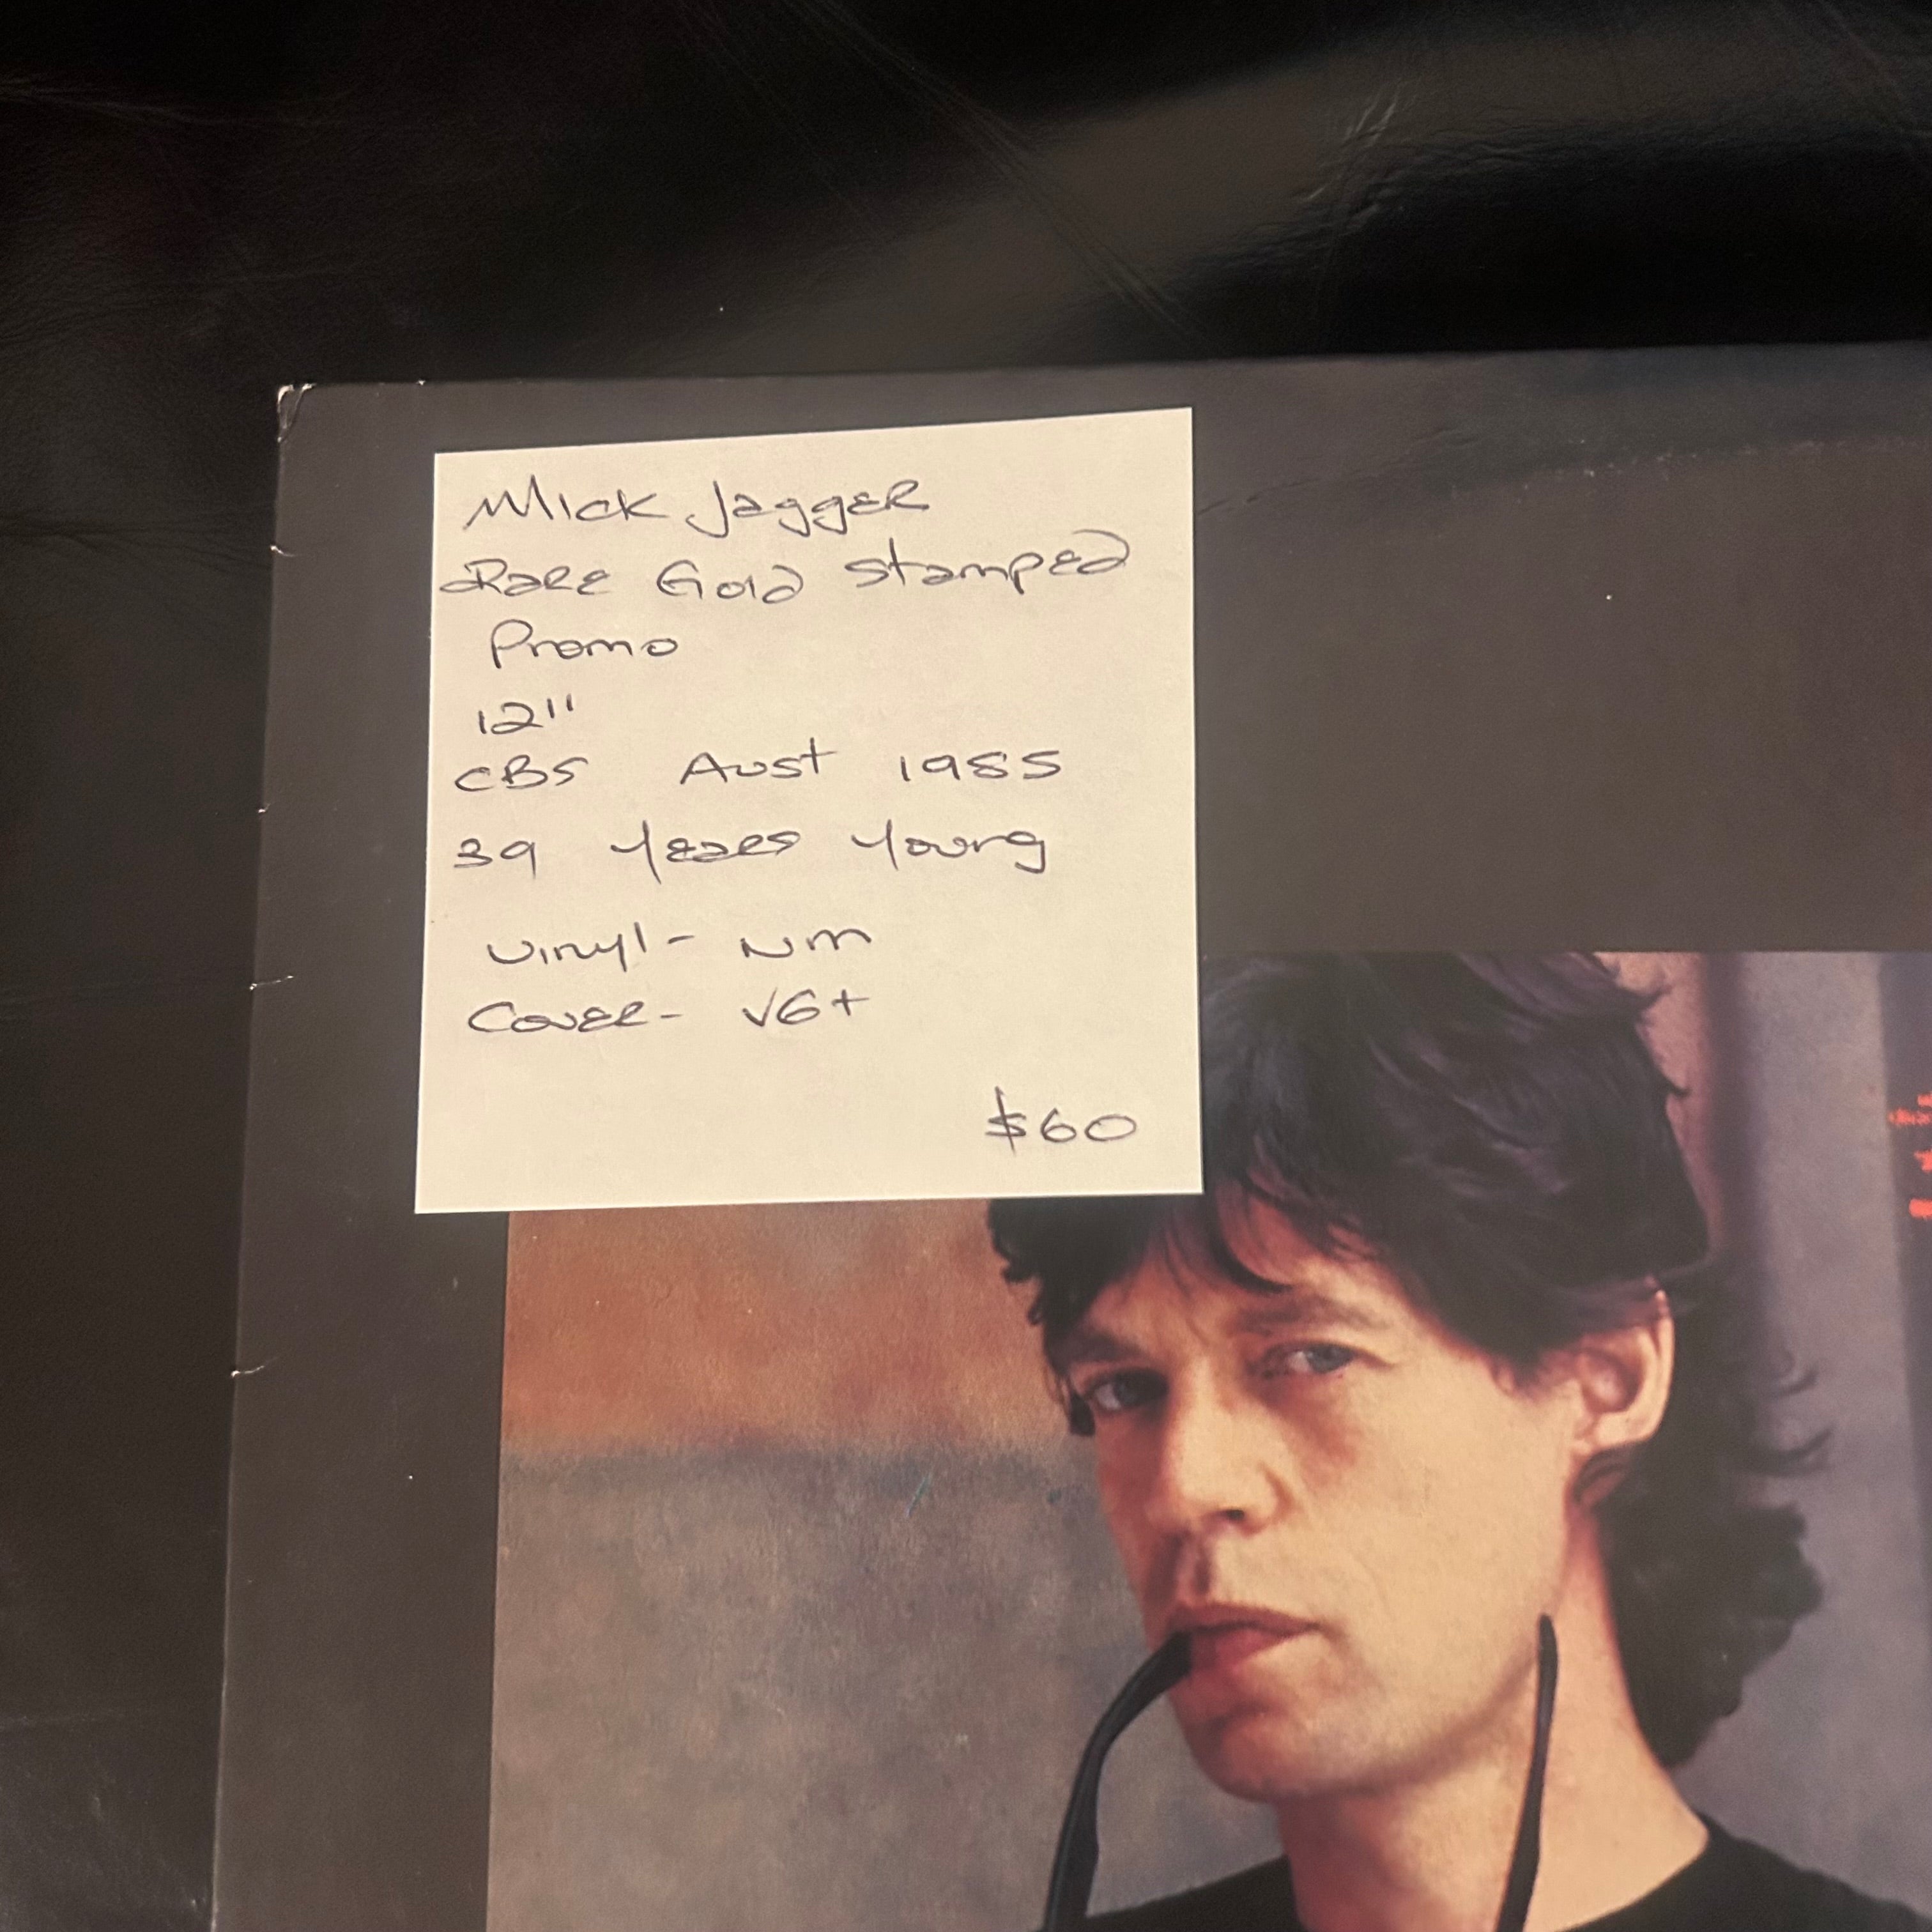 Mick Jagger
Rare Gold Stamped
Promo
12"
CBS Aust 1985
39 Years Young
Vinyl - NM
Cover - VG+
$60